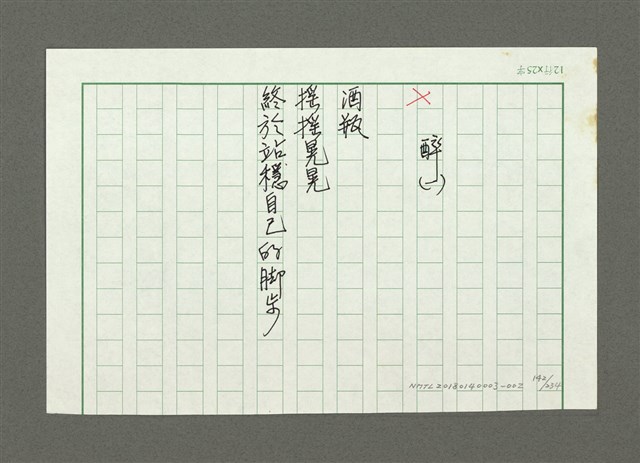 12行×25字
醉(一)
酒瓶
搖搖晃晃
終於站穩自己的腳步
NMTL20180140003-002
142/234